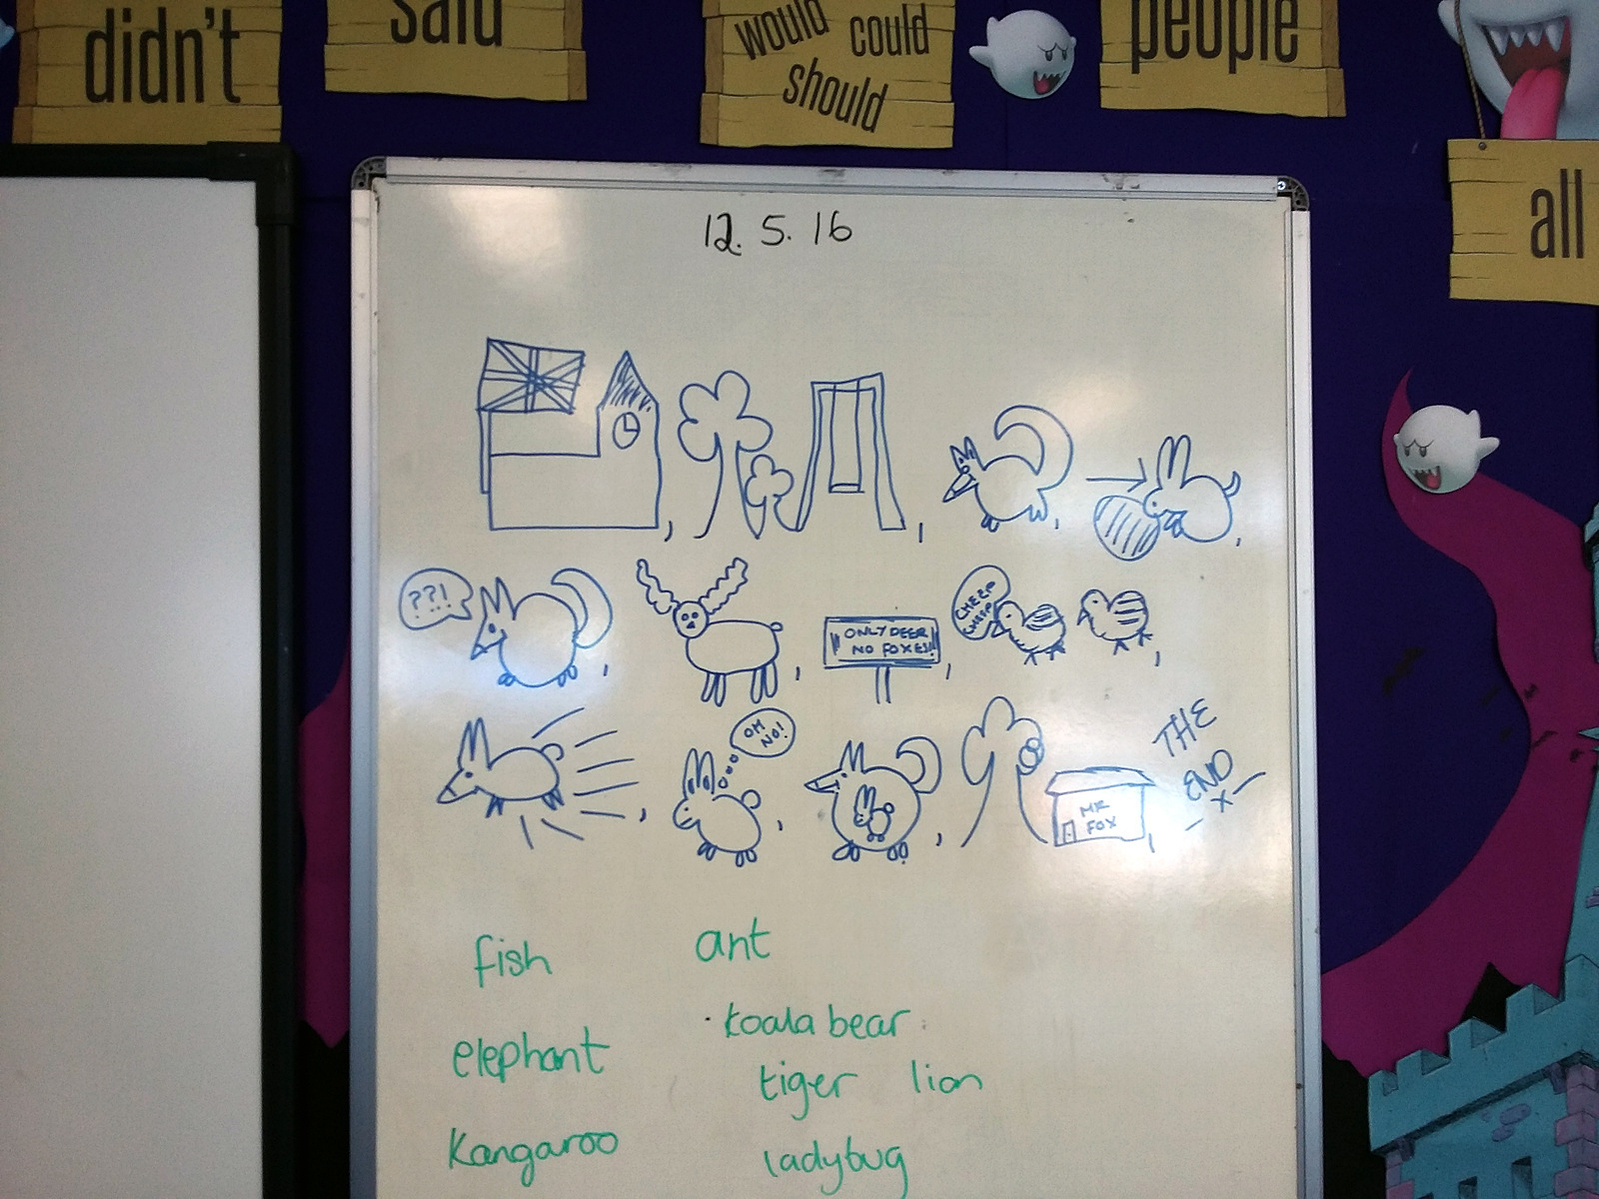 didn't
said
would could
should
people
all
12. 5. 16
??!
ONLY DEER
NO FOXES!!
CHEEP
CHEEP
OH
NO!
MR
FOX
THE
END
x
fish
ant
koala bear
elephant
tiger lion
Kangaroo
ladybug